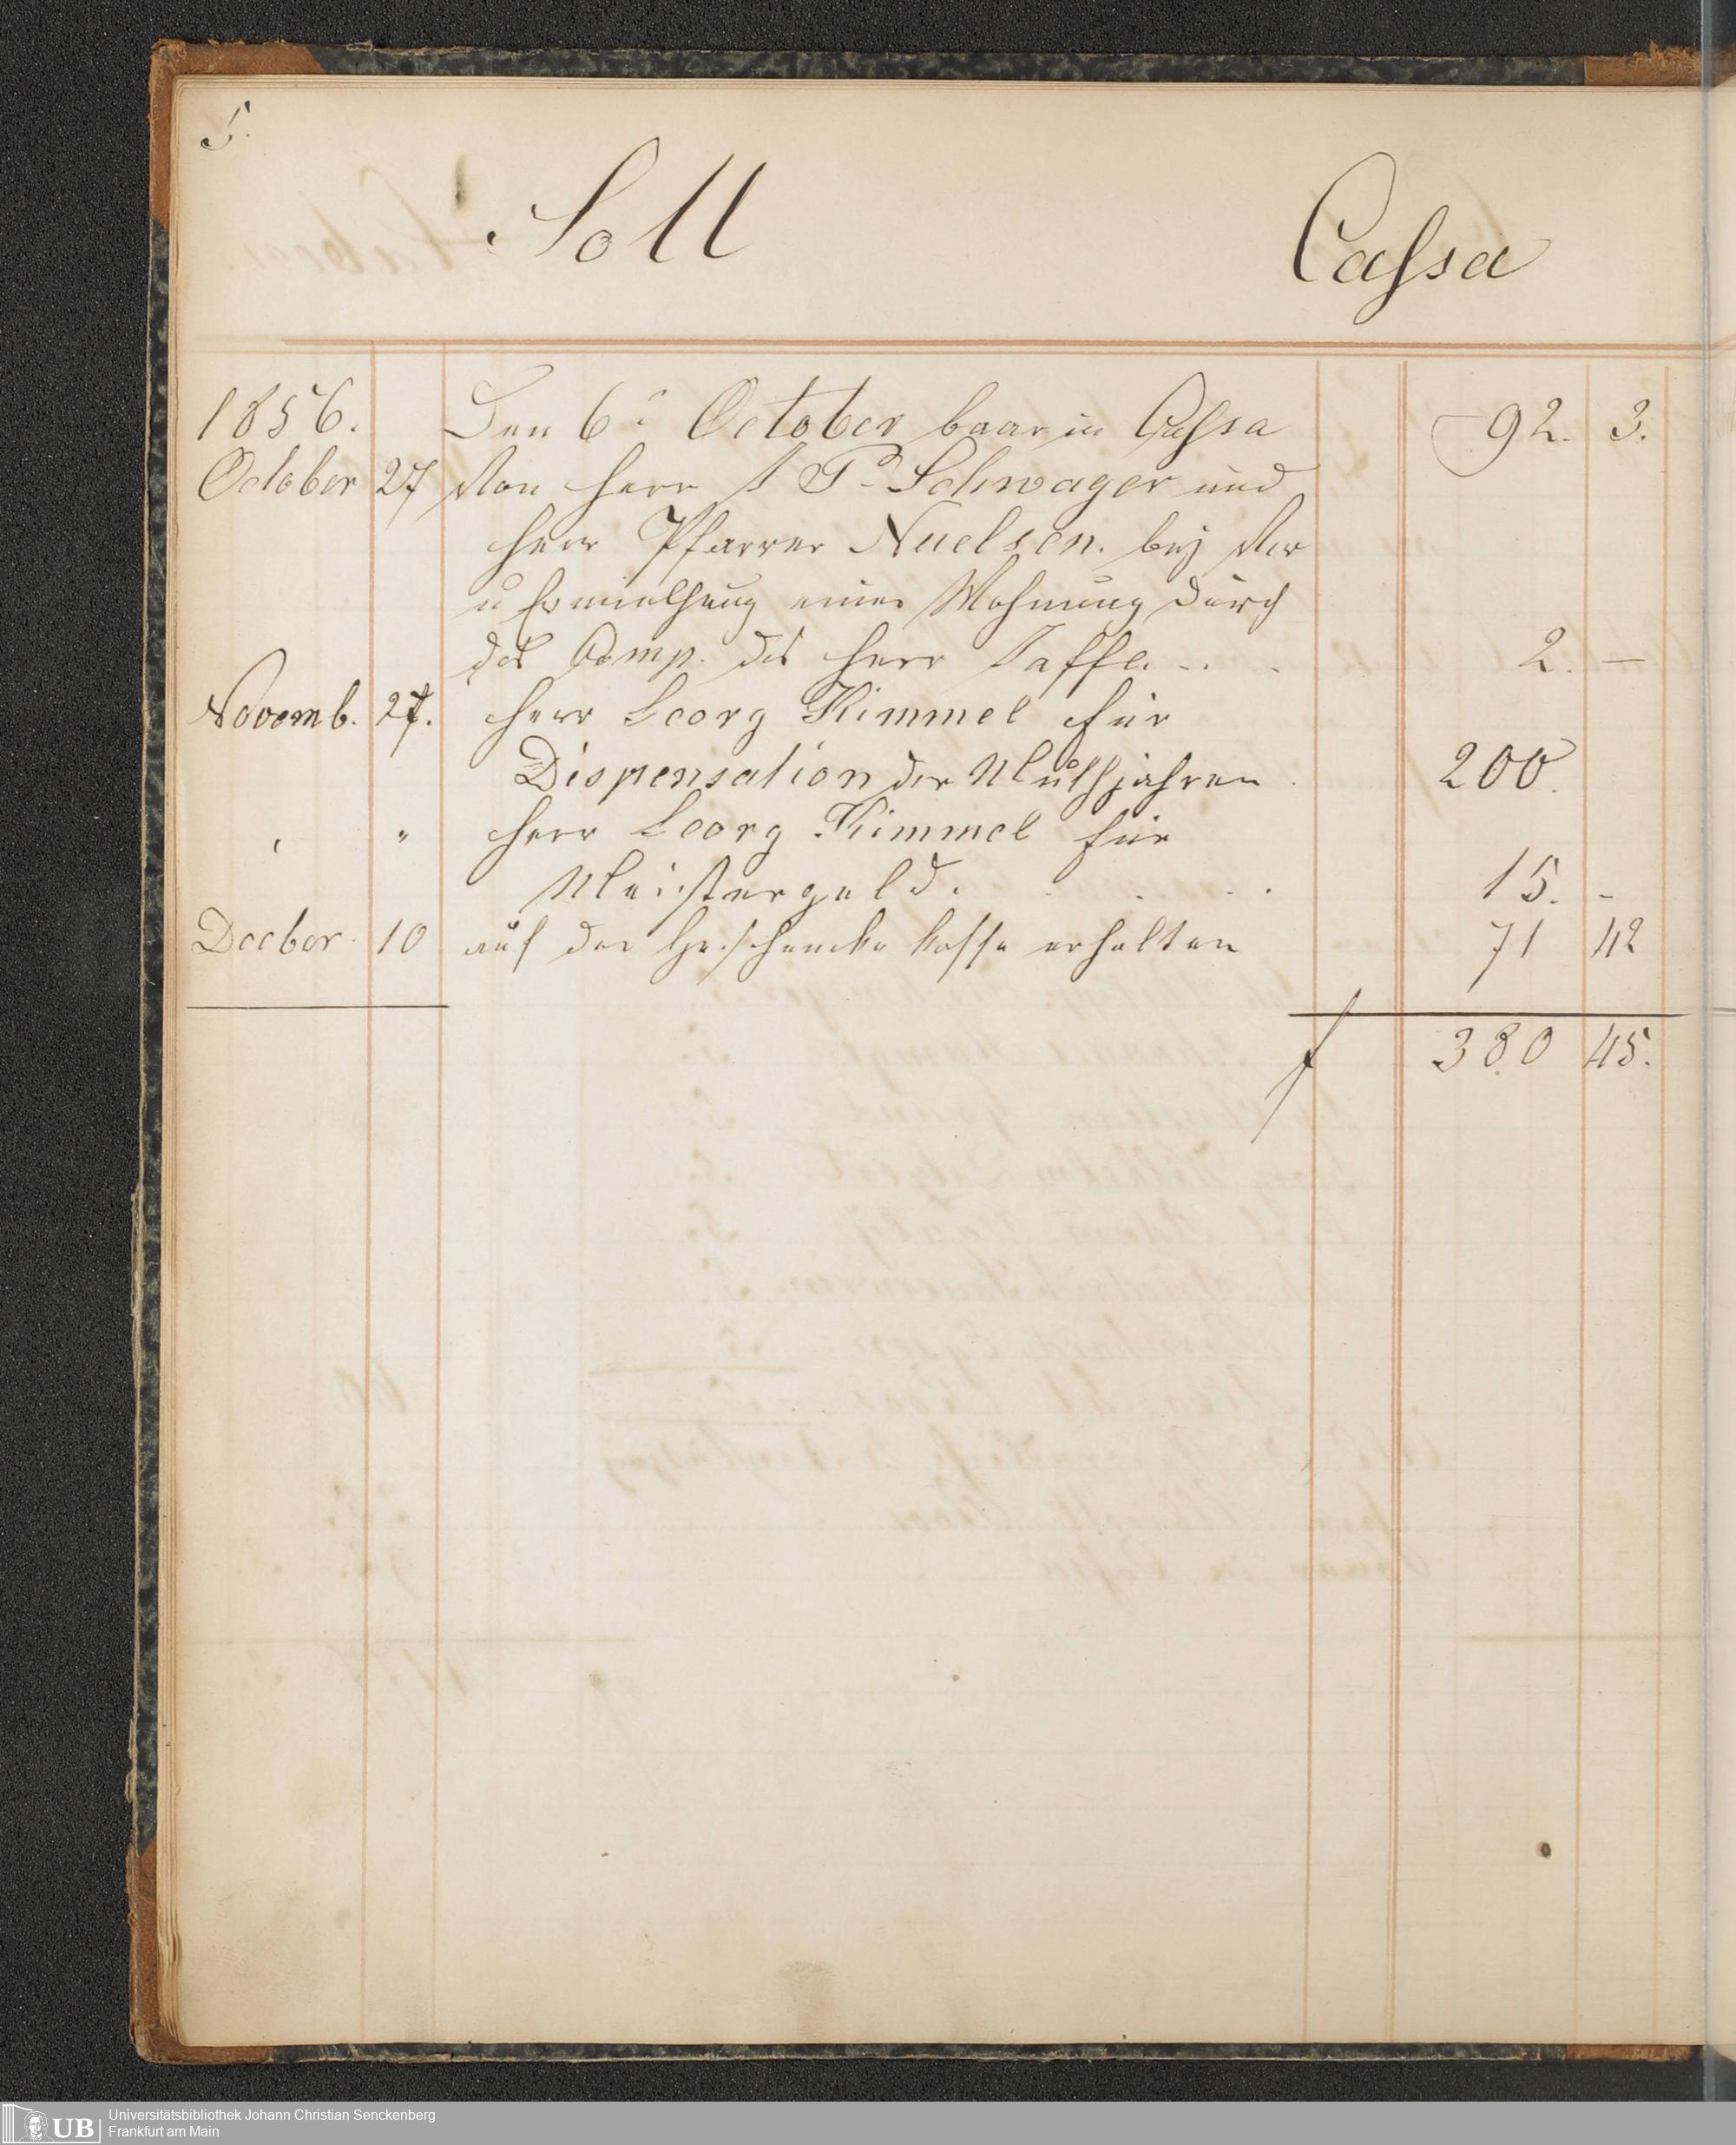 5.
Soll Cassa
1856. Den 6t October baar in Cassa 92. 3.
October 27 Von Herr P. Schwager und
Herr Pfarrer Nuelsen. bey Ver
u Ermiethung einer Wohnung durch
das Comp. des Herr Jaffe. . . 2. —
Novemb. 27. Herr Georg Kimmel für
Dispensation der Muthjahren 200.
" " Herr Georg Kimmel für
Meistergeld. . . . 15. -
Decber. 10 auf der Geschencke Kasse erhalten 71 42
f 380 45.
UB
Universitätsbibliothek Johann Christian Senckenberg
Frankfurt am Main